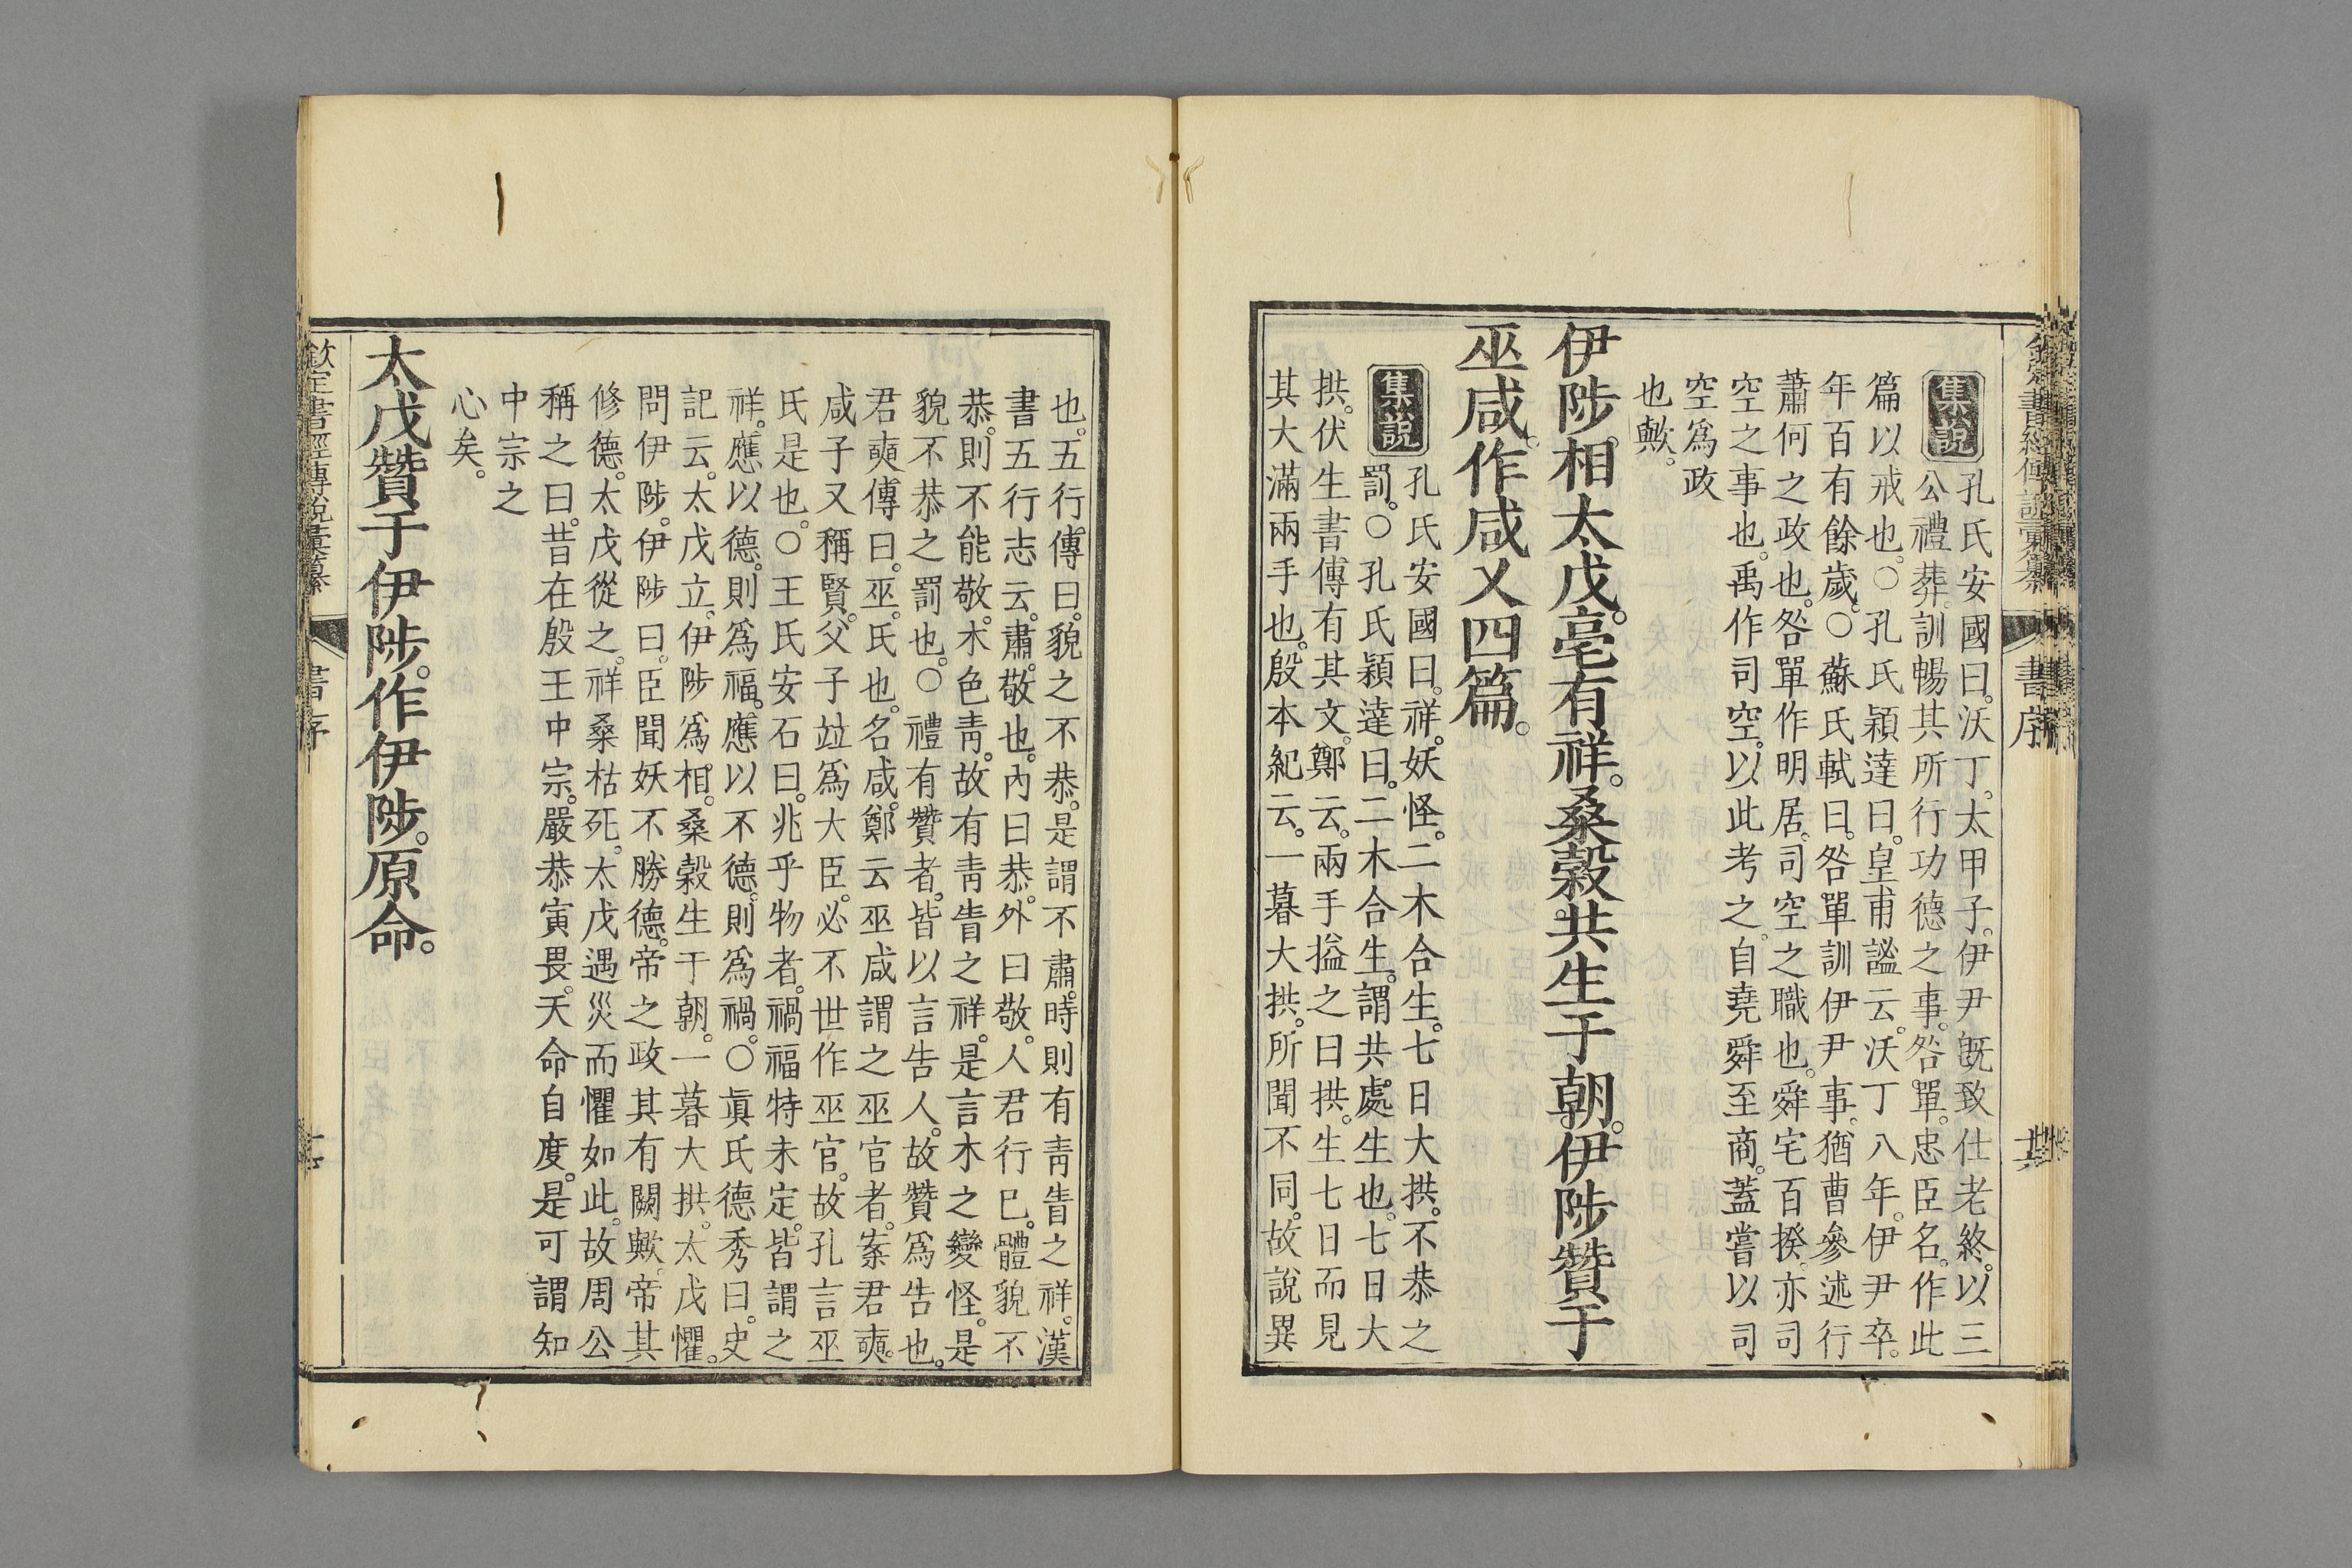 欽定書經傳說彙纂
書序
集說
孔氏安國曰。沃丁。太甲子。伊尹旣致仕老終。以三
公禮葬。訓暢其所行功德之事。咎單。忠臣名。作此
篇以戒也。○孔氏穎達曰。皇甫謐云。沃丁八年。伊尹卒。
年百有餘歲。○蘇氏軾曰。咎單訓伊尹事。猶曹參述行
蕭何之政也。咎單作明居。司空之職也。舜宅百揆。亦司
空之事也。禹作司空。以此考之。自堯舜至商。蓋嘗以司
空爲政
也歟。
伊陟相太戊。亳有祥。桑穀共生于朝。伊陟贊于
巫咸。作咸乂四篇。
集說
孔氏安國曰。祥。妖怪。二木合生。七日大拱。不恭之
罰。○孔氏穎達曰。二木合生。謂共處生也。七日大
拱。伏生書傳有其文。鄭云。兩手搤之曰拱。生七日而見
其大滿兩手也。殷本紀云。一暮大拱。所聞不同。故說異
也。五行傳曰。貌之不恭。是謂不肅。時則有靑眚之祥。漢
書五行志云。肅。敬也。內曰恭。外曰敬。人君行已。體貌不
恭。則不能敬。木色靑。故有靑眚之祥。是言木之變怪。是
貌不恭之罰也。○禮有贊者。皆以言告人。故贊爲告也。
君奭傳曰。巫。氏也。名咸。鄭云巫咸謂之巫官者。案君奭。
咸子又稱賢。父子竝爲大臣。必不世作巫官。故孔言巫
氏是也。○王氏安石曰。兆乎物者。禍福特未定。皆謂之
祥。應以德。則爲福。應以不德。則爲禍。○眞氏德秀曰。史
記云。太戊立。伊陟爲相。桑榖生于朝。一暮大拱。太戊懼。
問伊陟。伊陟曰。臣聞妖不勝德。帝之政其有闕歟。帝其
修德。太戊從之。祥桑枯死。太戊遇災而懼如此。故周公
稱之曰。昔在殷王中宗。嚴恭寅畏。天命自度。是可謂知
中宗之
心矣。
太戊贊于伊陟。作伊陟。原命。
欽定書經傳說彙纂
書序